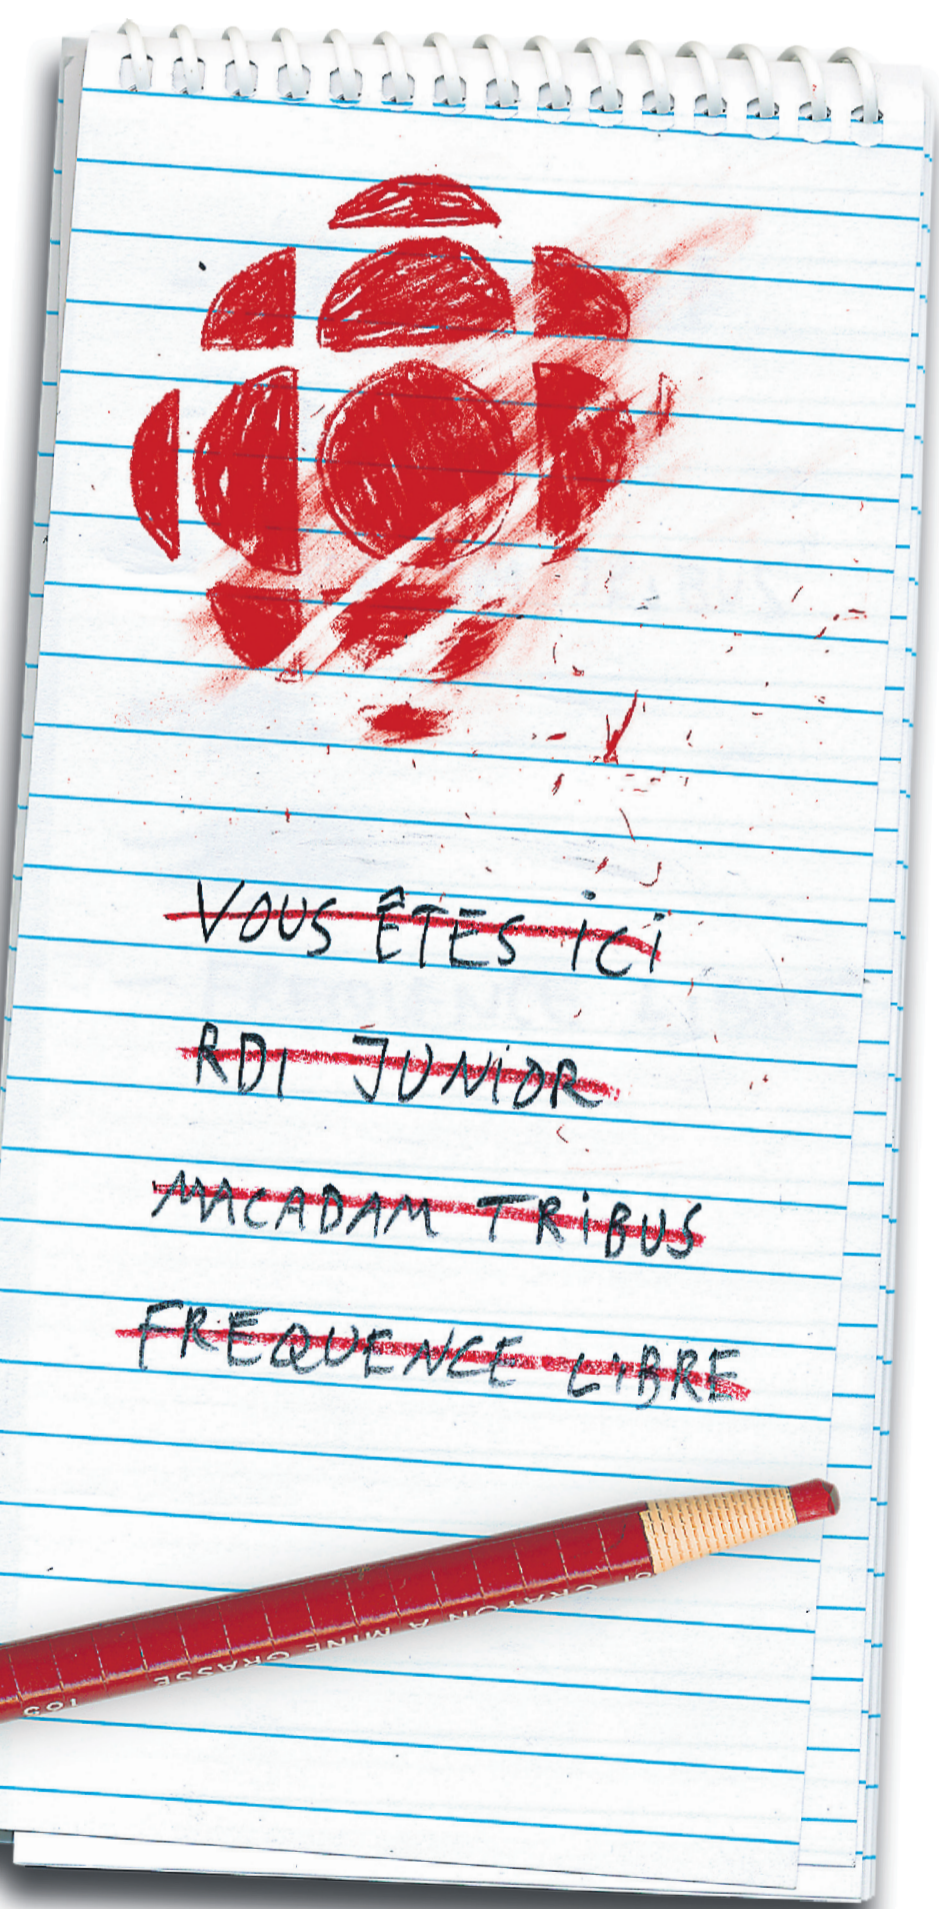 VOUS ÊTES iCi
RDI JUNiOR
MACADAM TRiBUS
FREQUENCE LIBRE
CRAYON A MINE GRASSE
165